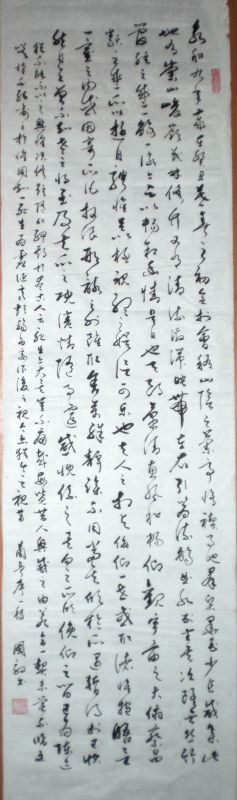 永和九年歲在癸丑暮春之初會於會稽山陰之蘭亭脩禊事也羣賢畢至少長咸集此
地有崇山峻嶺茂林脩竹又有清流激湍映帶左右引以為流觴曲水列坐其次雖無絲竹
管弦之盛一觴一詠亦足以暢敘幽情是日也天朗氣清惠風和暢仰觀宇宙之大俯察品
類之盛所以遊目騁懷足以極視聽之娛信可樂也夫人之相與俯仰一世或取諸懷抱晤言
一室之內或因寄所託放浪形骸之外雖取舍萬殊靜躁不同當其欣於所遇暫得於己快
然自足曾不知老之將至及其所之既倦情隨事遷感慨係之矣向之所欣俯仰之間已為陳迹
猶不能不以之興懷況脩短隨化終期於盡古人云死生亦大矣豈不痛哉每覽昔人興感之由若合一契未嘗不臨文
嗟悼不能喻之於懷固知一死生為虛誕齊彭殤為妄作後之視今亦猶今之視昔 蘭亭序一段